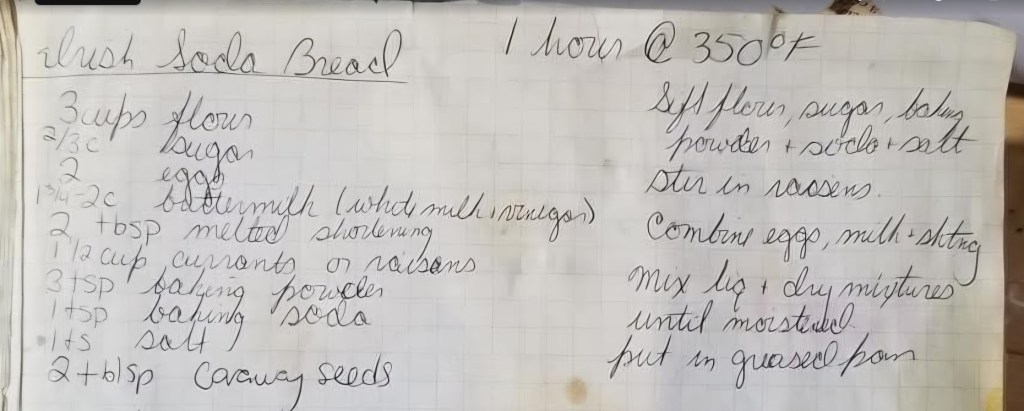 Irish Soda Bread
1 hour @ 350°F
3 cups flour
2/3 c sugar
2 eggs
1 3/4-2c buttermilk (whole milk + vinegar)
2 tbsp melted shortening
1 1/2 cup currants or raisens
3 tsp baking powder
1 tsp baking soda
1 ts salt
2 tblsp Caraway seeds
Sift flour, sugar, baking
powder + soda + salt
Stir in raisens.
Combine eggs, milk + shtng
mix liq + dry mixtures
until moistened.
put in greased pan